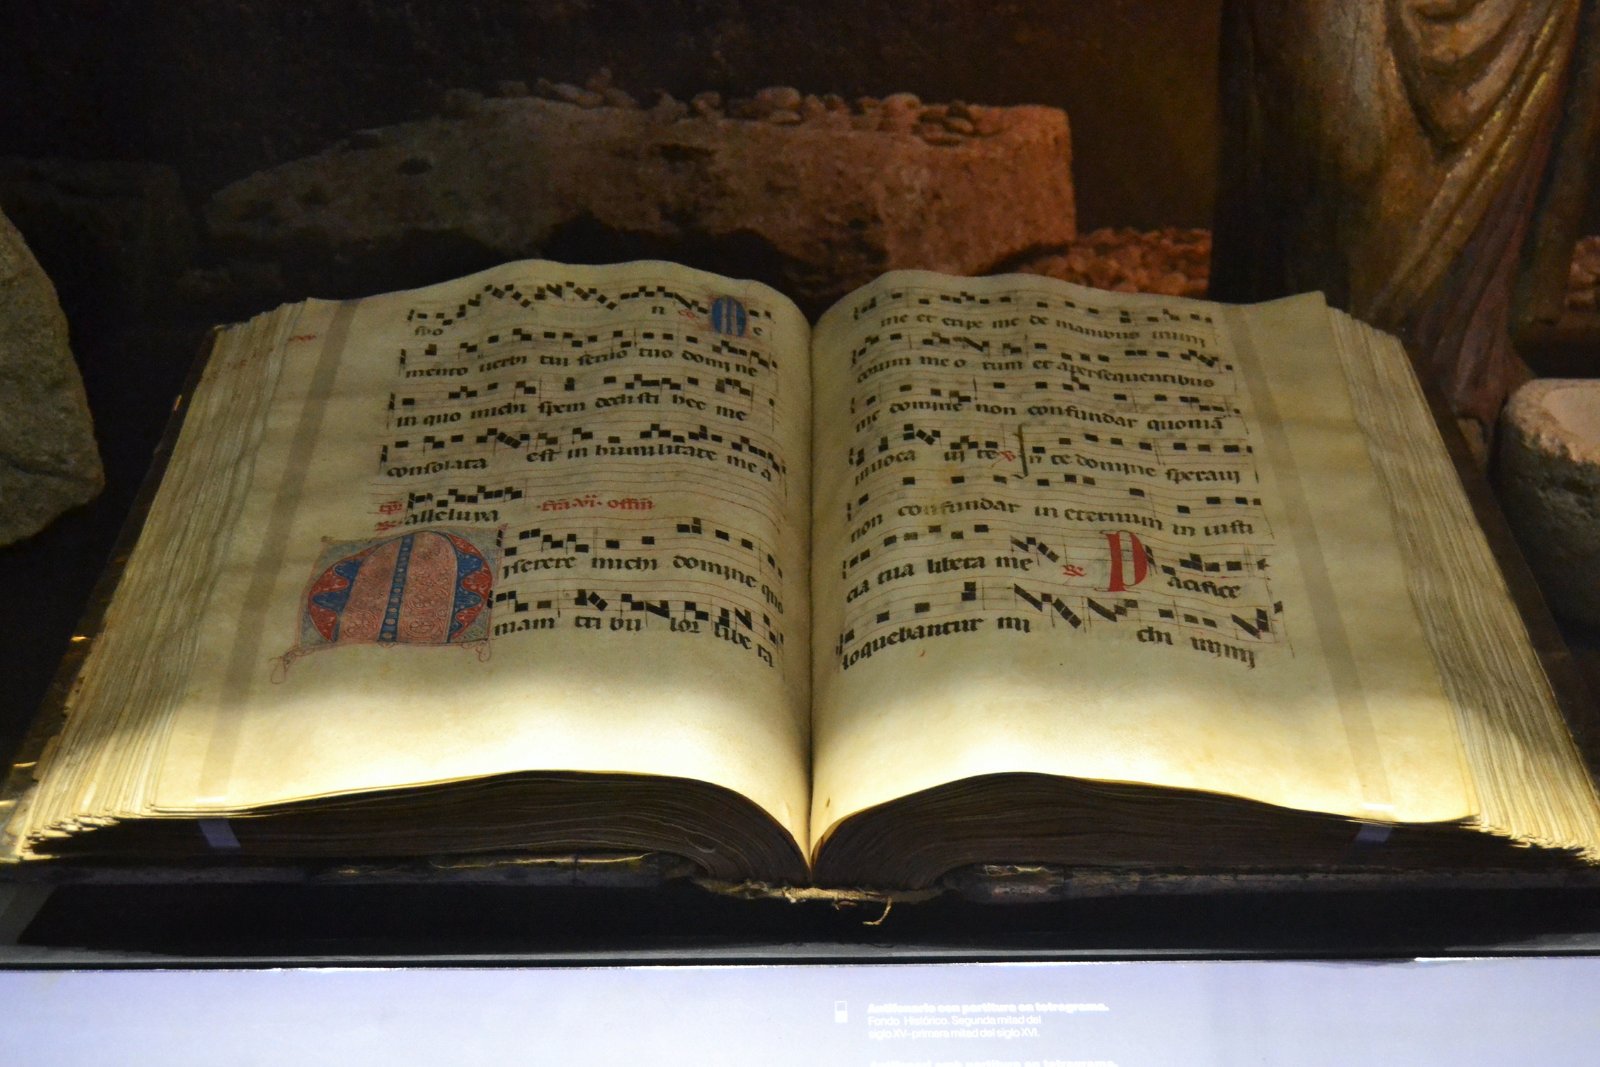 e
mento uerbi tui seruo tuo domine
in quo michi spem dedisti hec me
consolata est in humilitate mea
alleluya
Miserere michi domine quo
niam tribulor libera
me et eripe me de manibus inimi
corum meorum et a persequentibus
me domine non confundar quoniã
inuoca ui te In te domine speraui
non confundar in eternum in iusti
cia tua libera me Pacifice
loquebantur mi chi inimi
Antifonario con partitura en tetragrama.
Fondo Histórico. Segunda mitad del
siglo XV-primera mitad del siglo XVI.